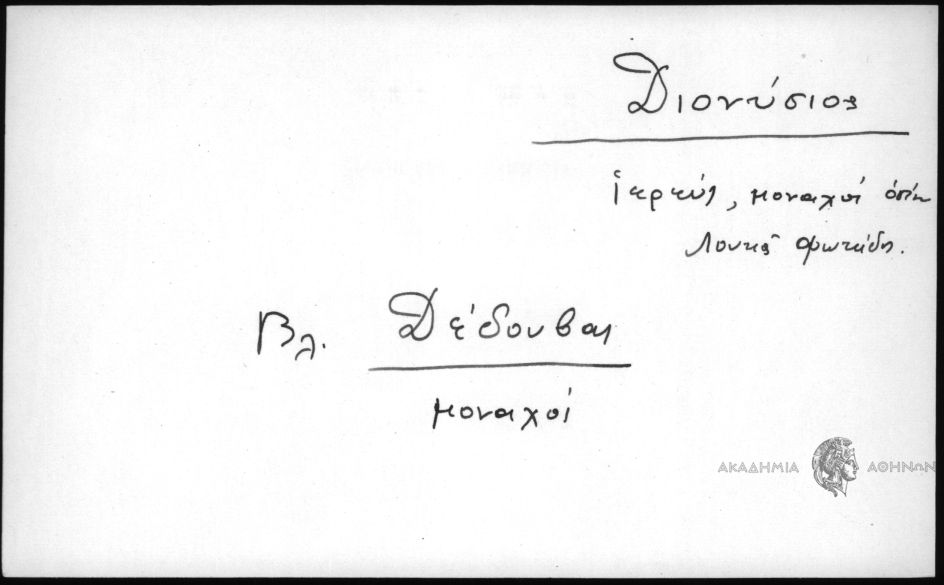 Διονύσιος
ἱερεύς, μοναχοί ὁσίου
Λουκᾶ Φωκίδος.
Βλ. Δέδουβαι
μοναχοί
ΑΚΑΔΗΜΙΑ ΑΘΗΝΩΝ